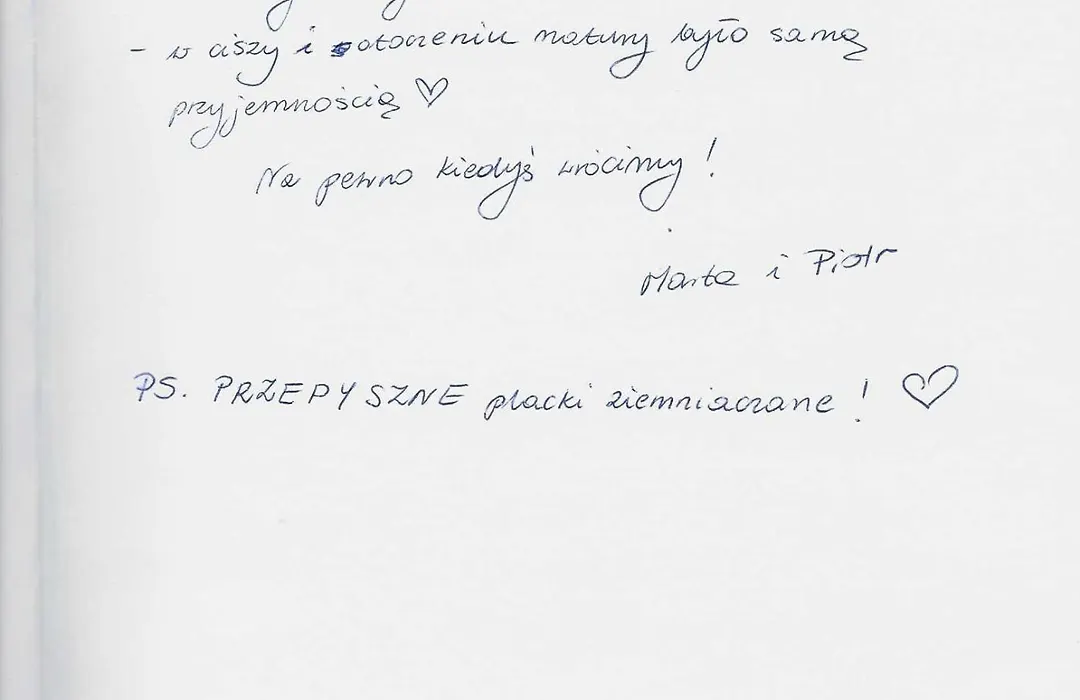 - w ciszy i otoczeniu natury było samą
przyjemnością ♡
Na pewno kiedyś wrócimy!
Marta i Piotr
PS. PRZEPYSZNE placki ziemniaczane! ♡